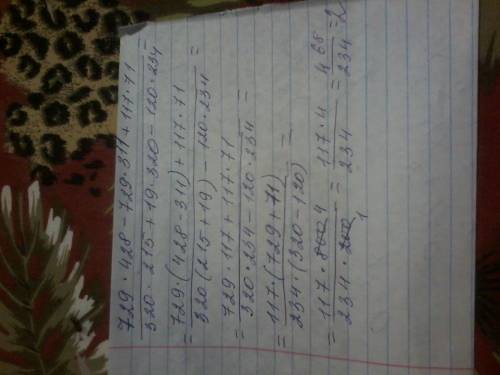 729 · 428 - 729 · 311 + 117 · 71
320 · 215 + 19 · 320 - 120 · 234
= 729 · (428 - 311) + 117 · 71
320 (215 + 19) - 120 · 234 =
= 729 · 117 + 117 · 71
320 · 234 - 120 · 234 =
= 117 · (729 + 71)
234 · (320 - 120) =
= 117 · 800 4
234 · 200 1 = 117 · 4
234 = 468
234 = 2